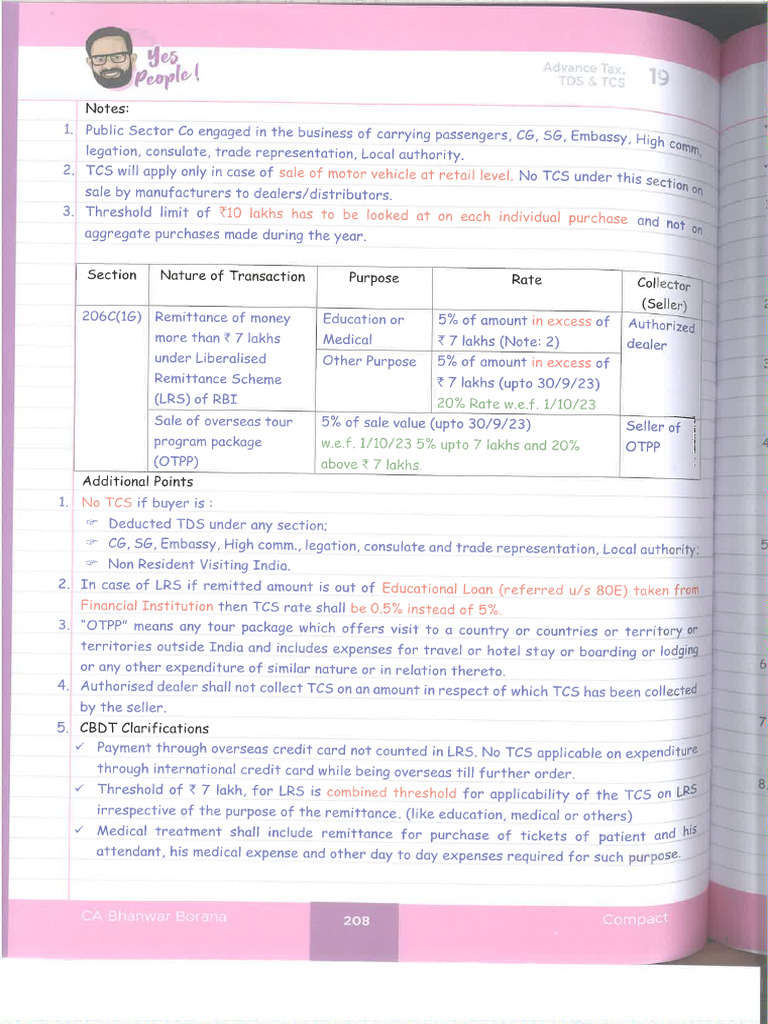 Yes
People!
Advance Tax,
TDS & TCS
19
Notes:
1. Public Sector Co engaged in the business of carrying passengers, CG, SG, Embassy, High comm,
legation, consulate, trade representation, Local authority.
2. TCS will apply only in case of sale of motor vehicle at retail level. No TCS under this section on
sale by manufacturers to dealers/distributors.
3. Threshold limit of ₹10 lakhs has to be looked at on each individual purchase and not on
aggregate purchases made during the year.
Section Nature of Transaction Purpose Rate Collector
(Seller)
206C(1G) Remittance of money Education or 5% of amount in excess of Authorized
more than ₹ 7 lakhs Medical ₹ 7 lakhs (Note: 2) dealer
under Liberalised Other Purpose 5% of amount in excess of
Remittance Scheme ₹ 7 lakhs (upto 30/9/23)
(LRS) of RBI 20% Rate w.e.f. 1/10/23
Sale of overseas tour 5% of sale value (upto 30/9/23) Seller of
program package w.e.f. 1/10/23 5% upto 7 lakhs and 20% OTPP
(OTPP) above ₹ 7 lakhs.
Additional Points
1. No TCS if buyer is :
☞ Deducted TDS under any section;
☞ CG, SG, Embassy, High comm., legation, consulate and trade representation, Local authority;
☞ Non Resident Visiting India.
2. In case of LRS if remitted amount is out of Educational Loan (referred u/s 80E) taken from
Financial Institution then TCS rate shall be 0.5% instead of 5%.
3. "OTPP" means any tour package which offers visit to a country or countries or territory or
territories outside India and includes expenses for travel or hotel stay or boarding or lodging
or any other expenditure of similar nature or in relation thereto.
4. Authorised dealer shall not collect TCS on an amount in respect of which TCS has been collected
by the seller.
5. CBDT Clarifications
✓ Payment through overseas credit card not counted in LRS. No TCS applicable on expenditure
through international credit card while being overseas till further order.
✓ Threshold of ₹ 7 lakh, for LRS is combined threshold for applicability of the TCS on LRS
irrespective of the purpose of the remittance. (like education, medical or others)
✓ Medical treatment shall include remittance for purchase of tickets of patient and his
attendant, his medical expense and other day to day expenses required for such purpose.
CA Bhanwar Borana
208
Compact
5
6
7
8.